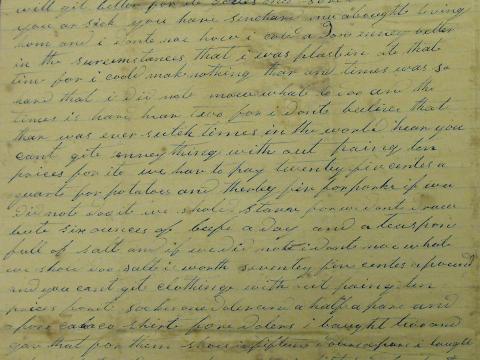 will git better for it
you ar sick you have
hom and i dont noe how i cold a don enney better
in the surcimstances that i was plast in at that
time for i cood mak nothing thar and times was so
hard that i did not noe what to doo and the
times is hard hear two for i dont beleive that
thar was ever sutch times in the world hear you
cant git enney thing with out paing ten
prices for it we hav to pay twenty five cents a
quarte for potatoes and therty five for porke if wee
did not doo it we shold starve for we dont draw
bute six ounces of beefe a day and a teaspon
full of salt and if we did note i dont noe what
we shold doo salt is worth seventy five centes a pound
and you cant git clothing with out paing ten
prices for it sockes one doler and a half a pare and
a pore calaco sherte fore dolers i bought two and
gav that for them shoes is fifteen dolers a pare i bought